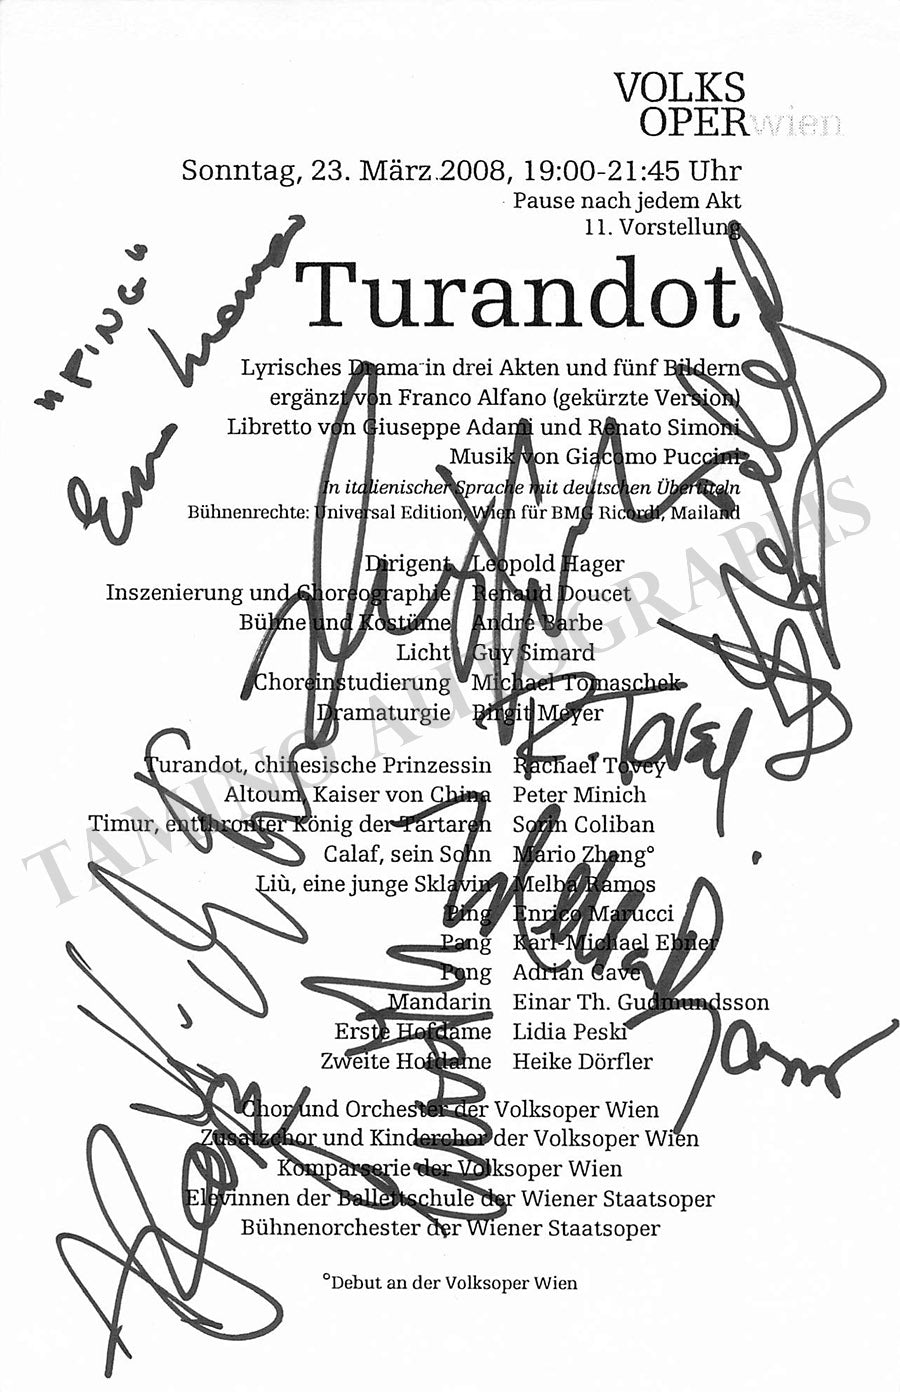 VOLKS
OPERwien
Sonntag, 23. März 2008, 19:00-21:45 Uhr
Pause nach jedem Akt
11. Vorstellung
"PING"
Turandot
Lyrisches Drama in drei Akten und fünf Bildern
ergänzt von Franco Alfano (gekürzte Version)
Libretto von Giuseppe Adami und Renato Simoni
Musik von Giacomo Puccini
In italienischer Sprache mit deutschen Übertiteln
Bühnenrechte: Universal Edition, Wien für BMG Ricordi, Mailand
Dirigent Leopold Hager
Inszenierung und Choreographie Renaud Doucet
Bühne und Kostüme André Barbe
Licht Guy Simard
Choreinstudierung Michael Tomaschek
Dramaturgie Birgit Meyer
R. Tovey
Turandot, chinesische Prinzessin Rachael Tovey
Altoum, Kaiser von China Peter Minich
Timur, entthronter König der Tartaren Sorin Coliban
Calaf, sein Sohn Mario Zhang°
Liù, eine junge Sklavin Melba Ramos
Ping Enrico Marucci
Pang Karl-Michael Ebner
Pong Adrian Cave
Mandarin Einar Th. Gudmundsson
Erste Hofdame Lidia Peski
Zweite Hofdame Heike Dörfler
Chor und Orchester der Volksoper Wien
Zusatzchor und Kinderchor der Volksoper Wien
Komparserie der Volksoper Wien
Elevinnen der Ballettschule der Wiener Staatsoper
Bühnenorchester der Wiener Staatsoper
°Debut an der Volksoper Wien
TAMINO AUTOGRAPHS